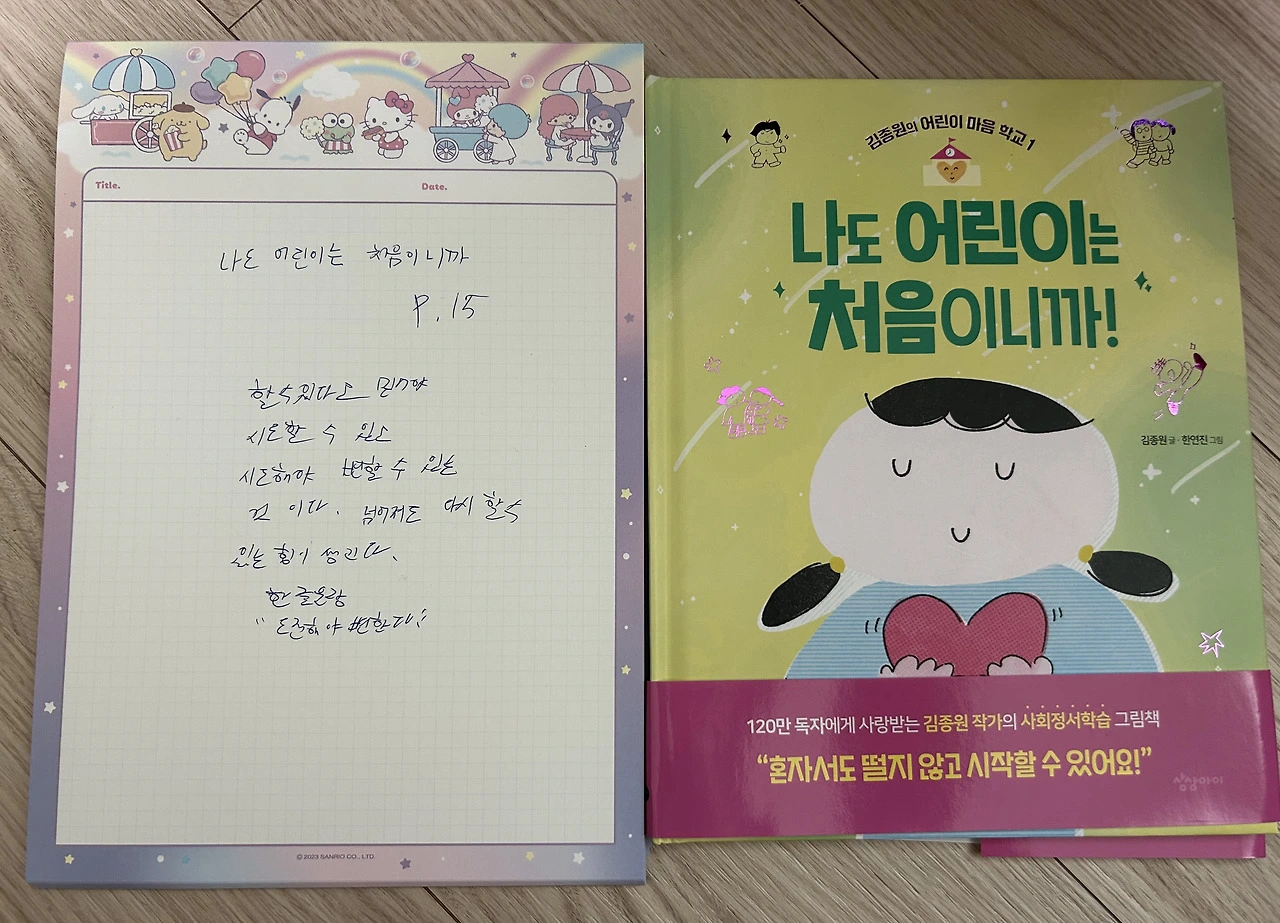 Title.
Date.
나도 어린이는 처음이니까
P. 15
할 수 있다고 믿어야
시도할 수 있고
시도해야 변할 수 있는
것 이다. 넘어져도 다시 할 수
있는 힘이 생긴다.
한 글
"도전해야 변한다"
© 2023 SANRIO CO., LTD.
김종원의 어린이 마음 학교 1
나도 어린이는
처음이니까!
김종원 글 · 한연진 그림
120만 독자에게 사랑받는 김종원 작가의 사회정서학습 그림책
“혼자서도 떨지 않고 시작할 수 있어요!”
상상아이